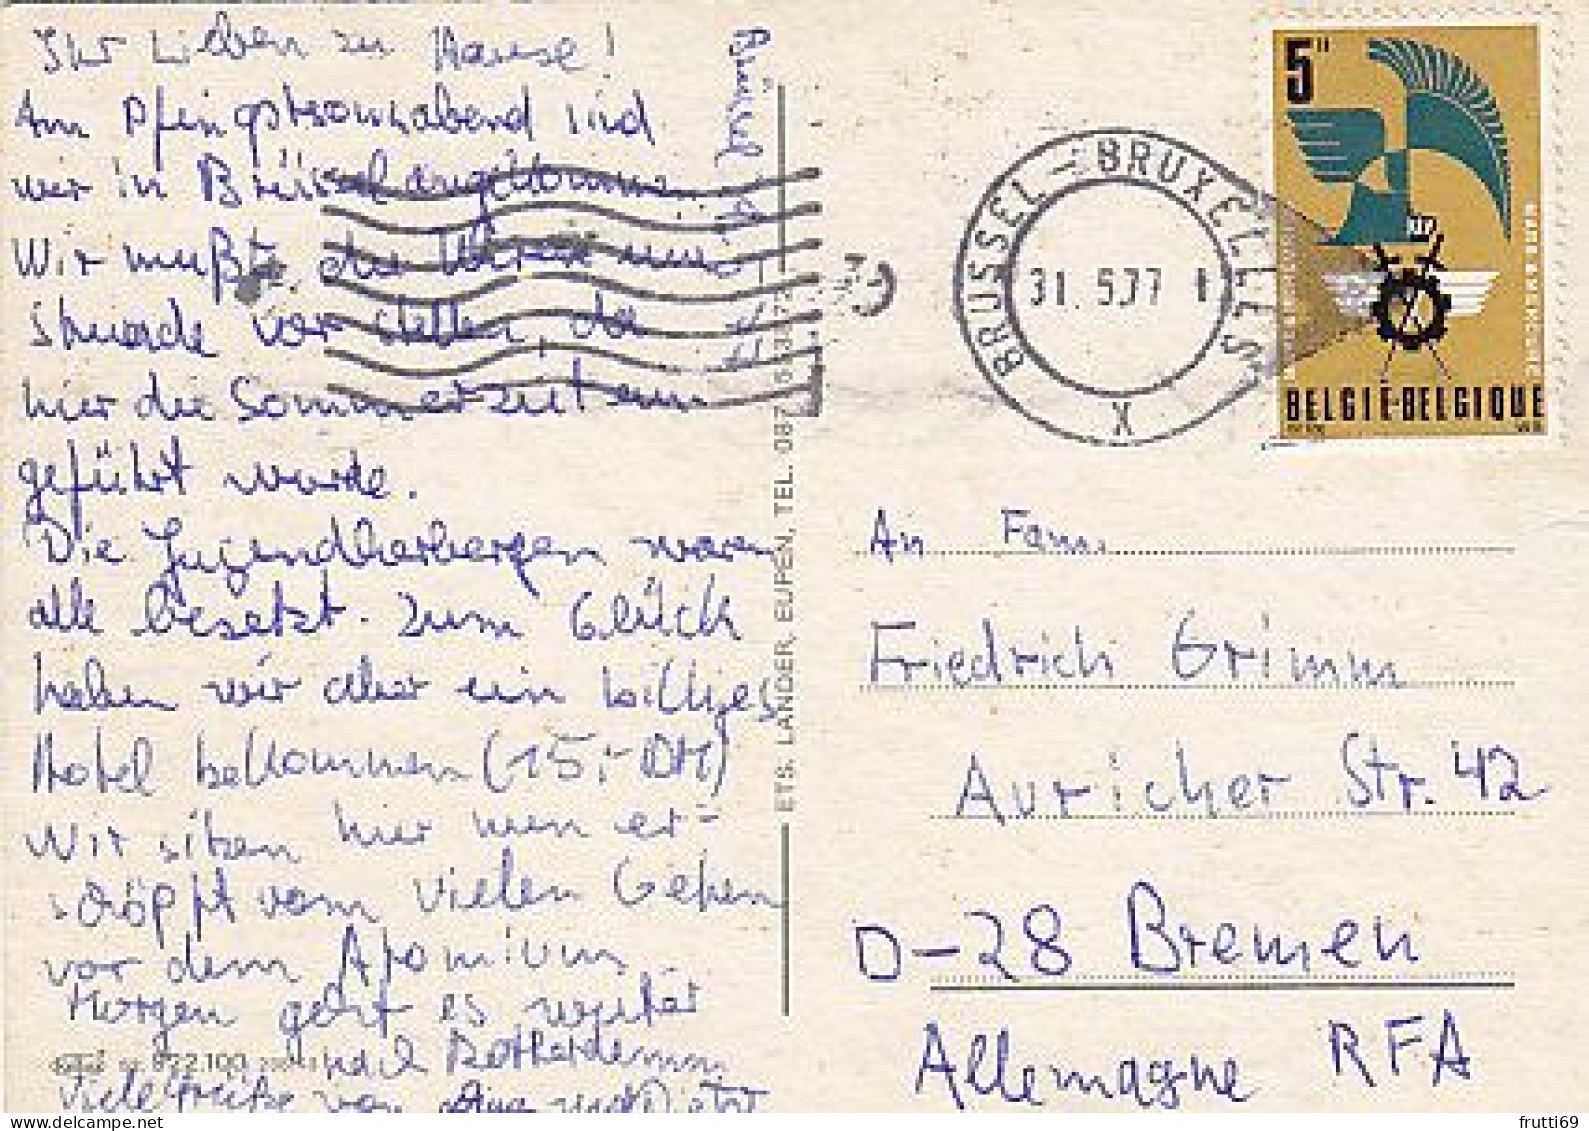 Ihr Lieben zu Hause!
Am Pfingstsonnabend sind
wir in Brüssel angekommen.
Wir mußten die Uhren um eine
Stunde vorstellen, da
hier die Sommerzeit ein
geführt wurde.
Die Jugendherbergen waren
alle besetzt. Zum Glück
haben wir aber ein billiges
Hotel bekommen (15,- DM)
Wir sitzen hier nun er-
schöpft vom vielen Gehen
vor dem Atomium
Morgen geht es weiter
nach Rotterdamm
Viele Grüße von und Dieter
Brüssel
822.100
ETS. LANDER, EUPEN, TEL. 087
BRUSSEL - BRUXELLES
31. 5.77
X
5
BELGIË-BELGIQUE
An Fam.
Friedrich Grimm
Auricher Str. 42
D-28 Bremen
Allemagne RFA
frutti69